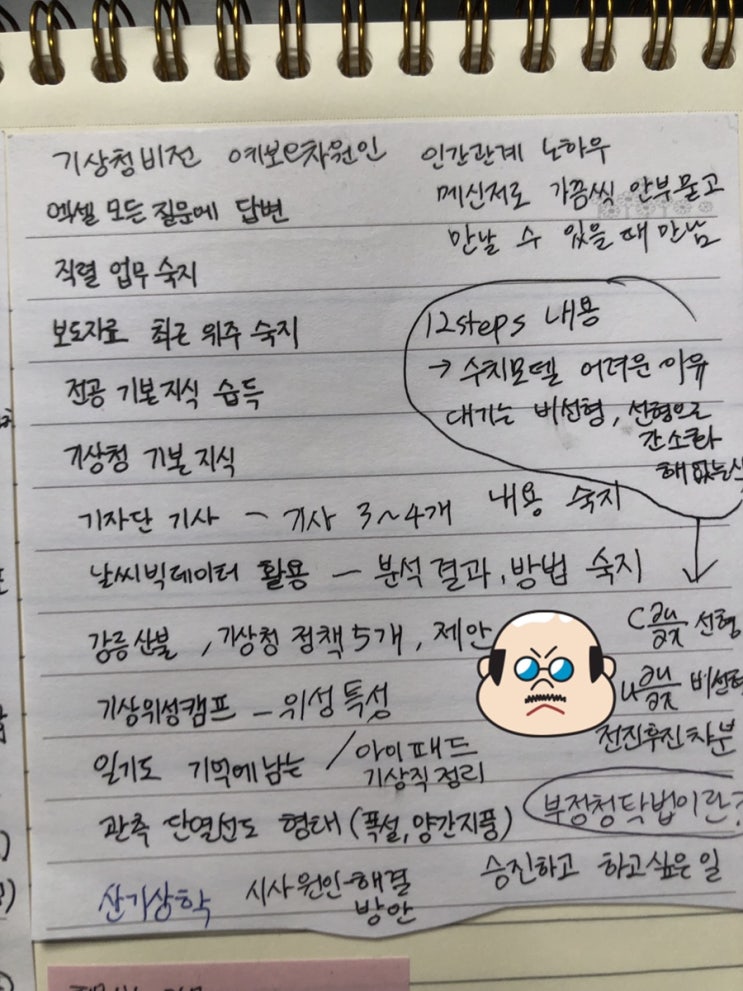 기상청비전 예보e차원인
엑셀 모든 질문에 답변
직렬 업무 숙지
보도자료 최근 위주 숙지
전공 기본지식 습득
기상청 기본지식
인간관계 노하우
메신저로 가끔씩 안부묻고
만날 수 있을 때 만남
12steps 내용
→ 수치모델 어려운 이유
대기는 비선형, 선형으로
간소화
해 없는식
기자단 기사 - 기사 3~4개 내용 숙지
날씨빅데이터 활용 - 분석결과, 방법 숙지
강릉산불, 기상청 정책5개, 제안
기상위성캠프 - 위성특성
일기도 기억에남는 / 아이패드
기상직정리
관측 단열선도 형태 (폭설, 양간지풍)
산기상학 시사원인-해결
방안
C ∂u/∂x 선형
u ∂u/∂x 비선형
전진후진차분
부정청탁법이란?
승진하고 하고싶은 일